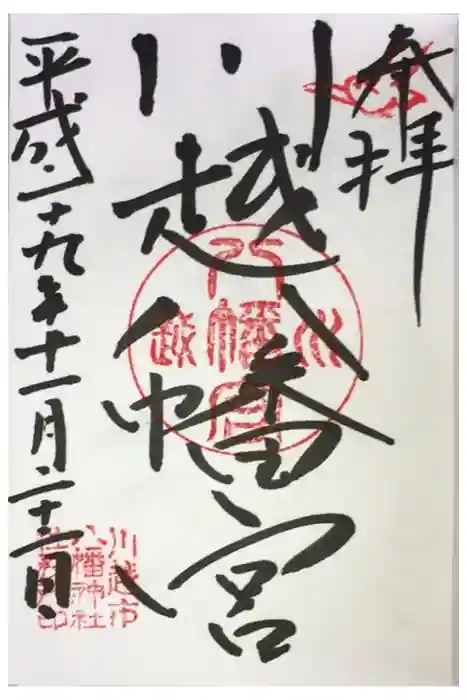 奉拝
川越八幡宮
平成二十九年十一月二十三日
川越八幡宮
川越市
八幡神社
社務所印